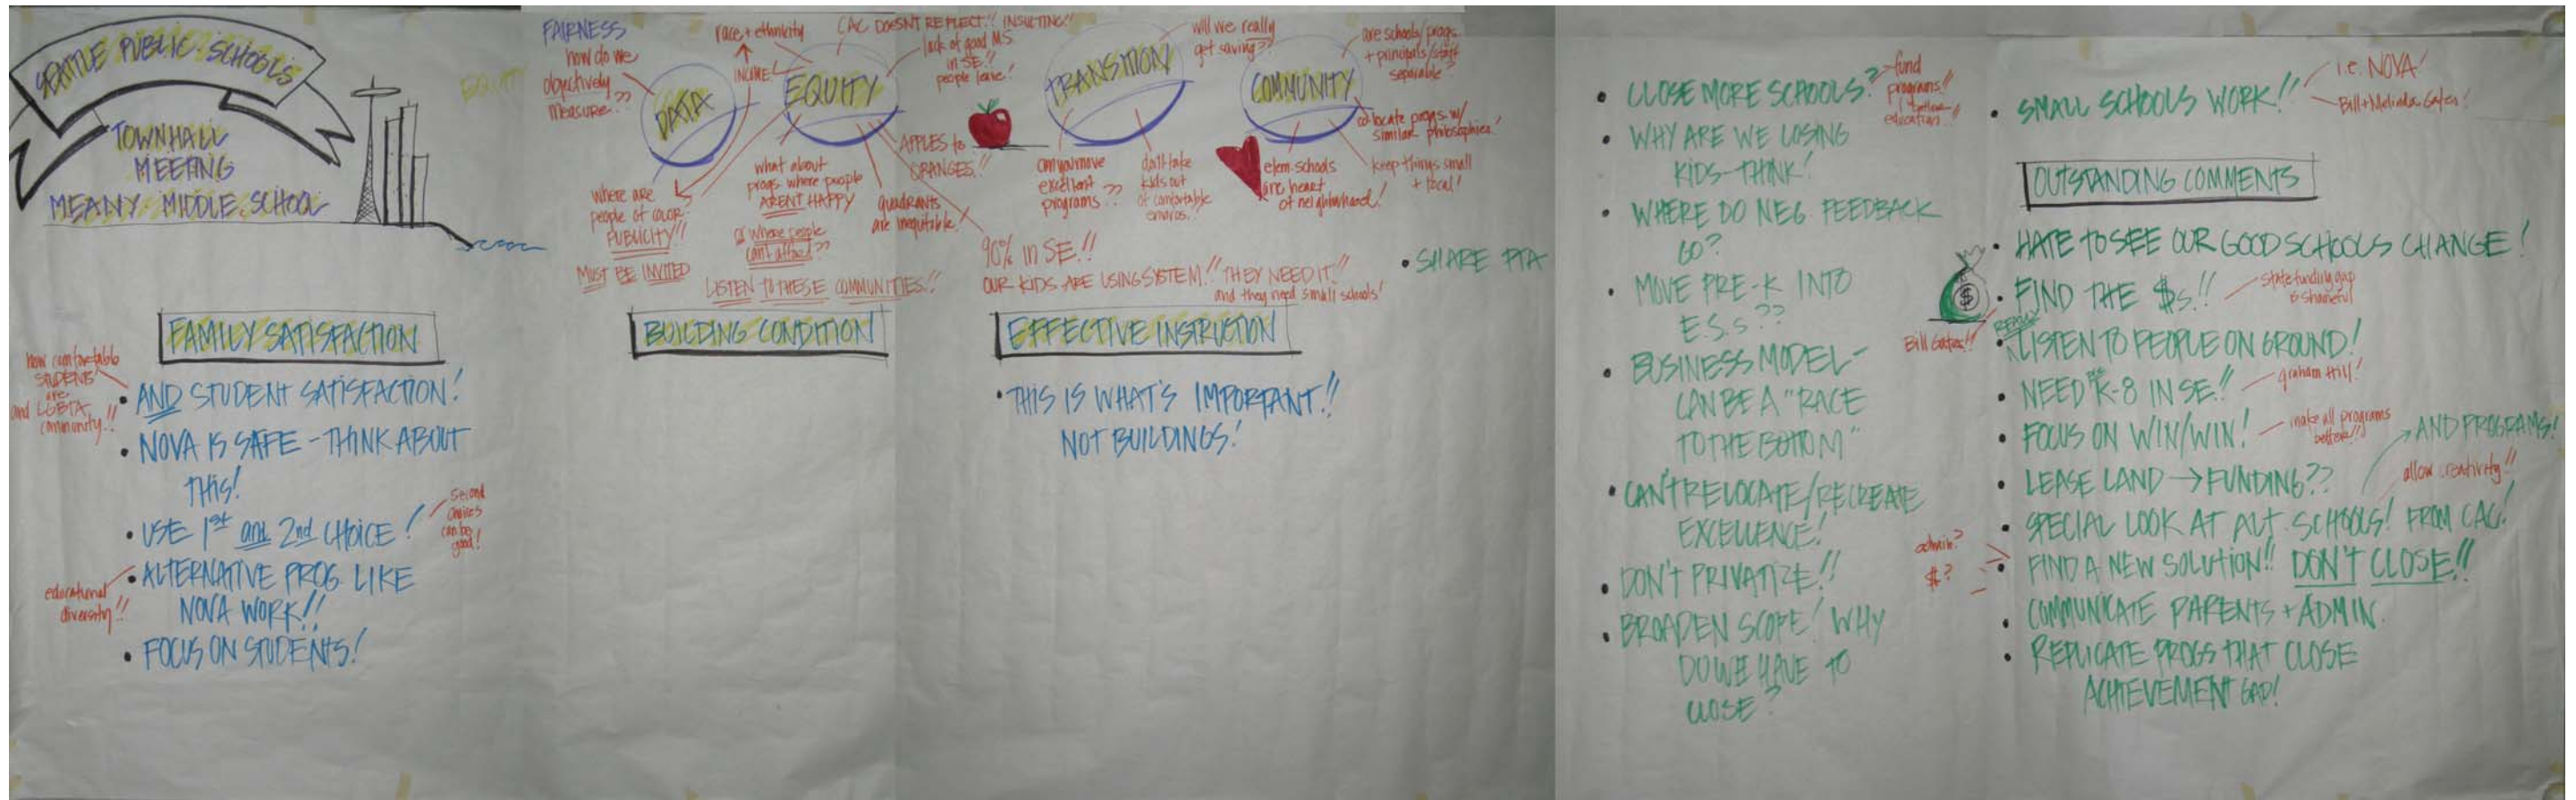 SEATTLE PUBLIC SCHOOLS
TOWNHALL
MEETING
MEANY MIDDLE SCHOOL
EQUITY
FAIRNESS
how do we
objectively
measure??
DATA
race + ethnicity
INCOME
EQUITY
CAC DOESN'T REFLECT!! INSULTING!!
lack of good M.S.
in SE!!
people leave!
where are
people of color
PUBLICITY!!
MUST BE INVITED
what about
progs where people
AREN'T HAPPY
or where people
can't afford??
LISTEN TO THESE COMMUNITIES!!
quadrants
are inequitable!
APPLES to
ORANGES!!
90% in SE!!
OUR KIDS ARE USING SYSTEM!! THEY NEED IT!!
and they need small schools!
TRANSITION
will we really
get saving??
can you move
excellent
programs??
don't take
kids out
of comfortable
enviros!!
COMMUNITY
are schools/progs
+ principals/staff
separable?
co-locate progs w/
similar philosophies!
keep things small
+ local!
elem. schools
are heart
of neighborhood!
• SHARE PTA
FAMILY SATISFACTION
how comfortable
STUDENTS
are
and LGBTA
community!!
• AND STUDENT SATISFACTION!
• NOVA IS SAFE - THINK ABOUT
THIS!
• USE 1st and 2nd CHOICE!
second
choices
can be
good!
• ALTERNATIVE PROG LIKE
NOVA WORK!!
educational
diversity!!
• FOCUS ON STUDENTS!
BUILDING CONDITION
EFFECTIVE INSTRUCTION
• THIS IS WHAT'S IMPORTANT!!
NOT BUILDINGS!
• CLOSE MORE SCHOOLS?
fund
programs!!
education!!
• WHY ARE WE LOSING
KIDS - THINK!
• WHERE DO NEG. FEEDBACK
GO?
• MOVE PRE-K INTO
E.S.s??
• BUSINESS MODEL -
CAN BE A "RACE
TO THE BOTTOM"
• CAN'T RELOCATE/RECREATE
EXCELLENCE!
• DON'T PRIVATIZE!!
• BROADEN SCOPE! WHY
DO WE HAVE TO
CLOSE?
• SMALL SCHOOLS WORK!!
i.e. NOVA!
Bill + Melinda Gates!
OUTSTANDING COMMENTS
• HATE TO SEE OUR GOOD SCHOOLS CHANGE!
$
• FIND THE $s!!
state funding gap
is shameful
Bill Gates!!
REALLY
• LISTEN TO PEOPLE ON GROUND!
• NEED K-8 IN SE!!
Graham Hill!
• FOCUS ON WIN/WIN!
make all programs
better!!
• LEASE LAND → FUNDING??
AND PROGRAMS!
allow creativity!!
• SPECIAL LOOK AT ALT. SCHOOLS! FROM CAC!
• FIND A NEW SOLUTION!! DON'T CLOSE!!
admin?
$?
• COMMUNICATE PARENTS + ADMIN.
• REPLICATE PROGS THAT CLOSE
ACHIEVEMENT GAP!